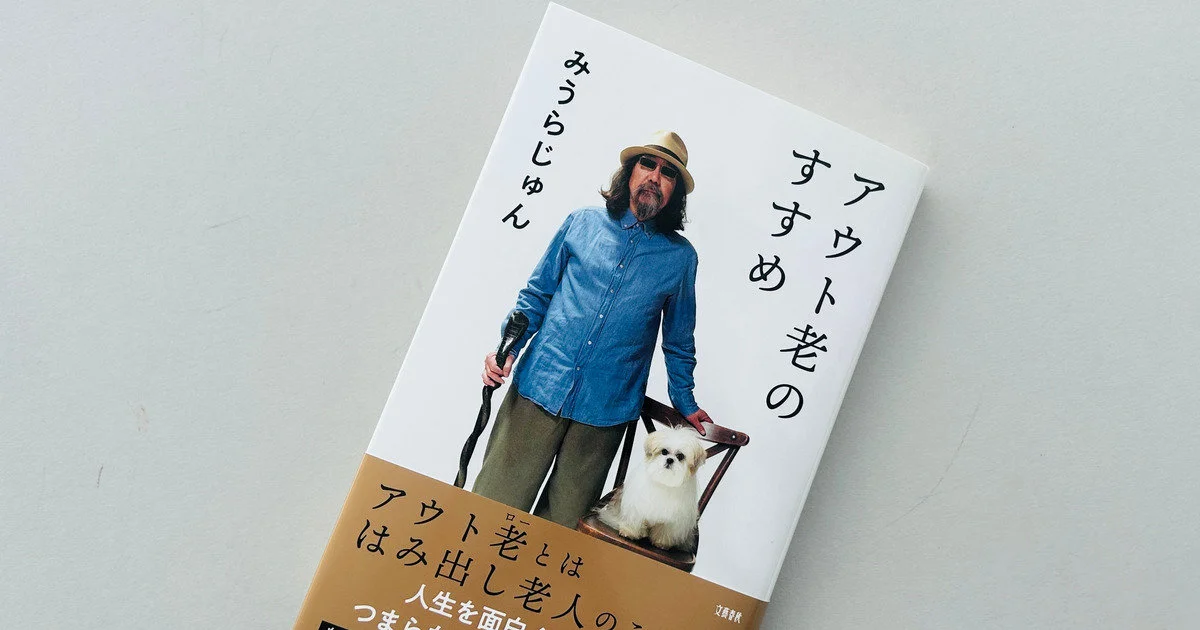 アウト老の
すすめ
みうらじゅん
ロー
アウト老とは
はみ出し老人の
人生を面白
つまら
文藝春秋